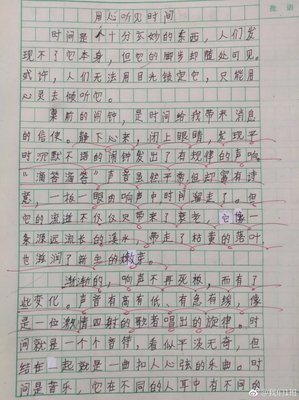 批语
用心听见时间
时间是个十分玄妙的东西，人们发
现不了它本身，但它的脚步却随处可见。
或许，人们无法用目光锁定它，只能用
心灵去倾听它。
桌前的闹钟，是时间给我带来消息
的信使。静下心来，闭上眼睛，发现平
时沉默不语的闹钟发出了有规律的声响
“滴答滴答”声音虽然平常，但却富有诗
意，一拍一眼的响声中时间溜走了。但
它的流逝不仅仅只带来了衰老，它像一
条深远流长的溪水，带走了枯黄的落叶
也滋润了新生的嫩芽。
渐渐的，响声不再死板，而有了
些变化。声音有高有低，有急有缓，像
是一位激情四射的歌者唱出的旋律。时
间就是一个个音律，看似平淡无奇，但
结在一起就是一曲扣人心弦的乐曲。时
间是音乐，它在不同的人耳中有不同的
@我们1班